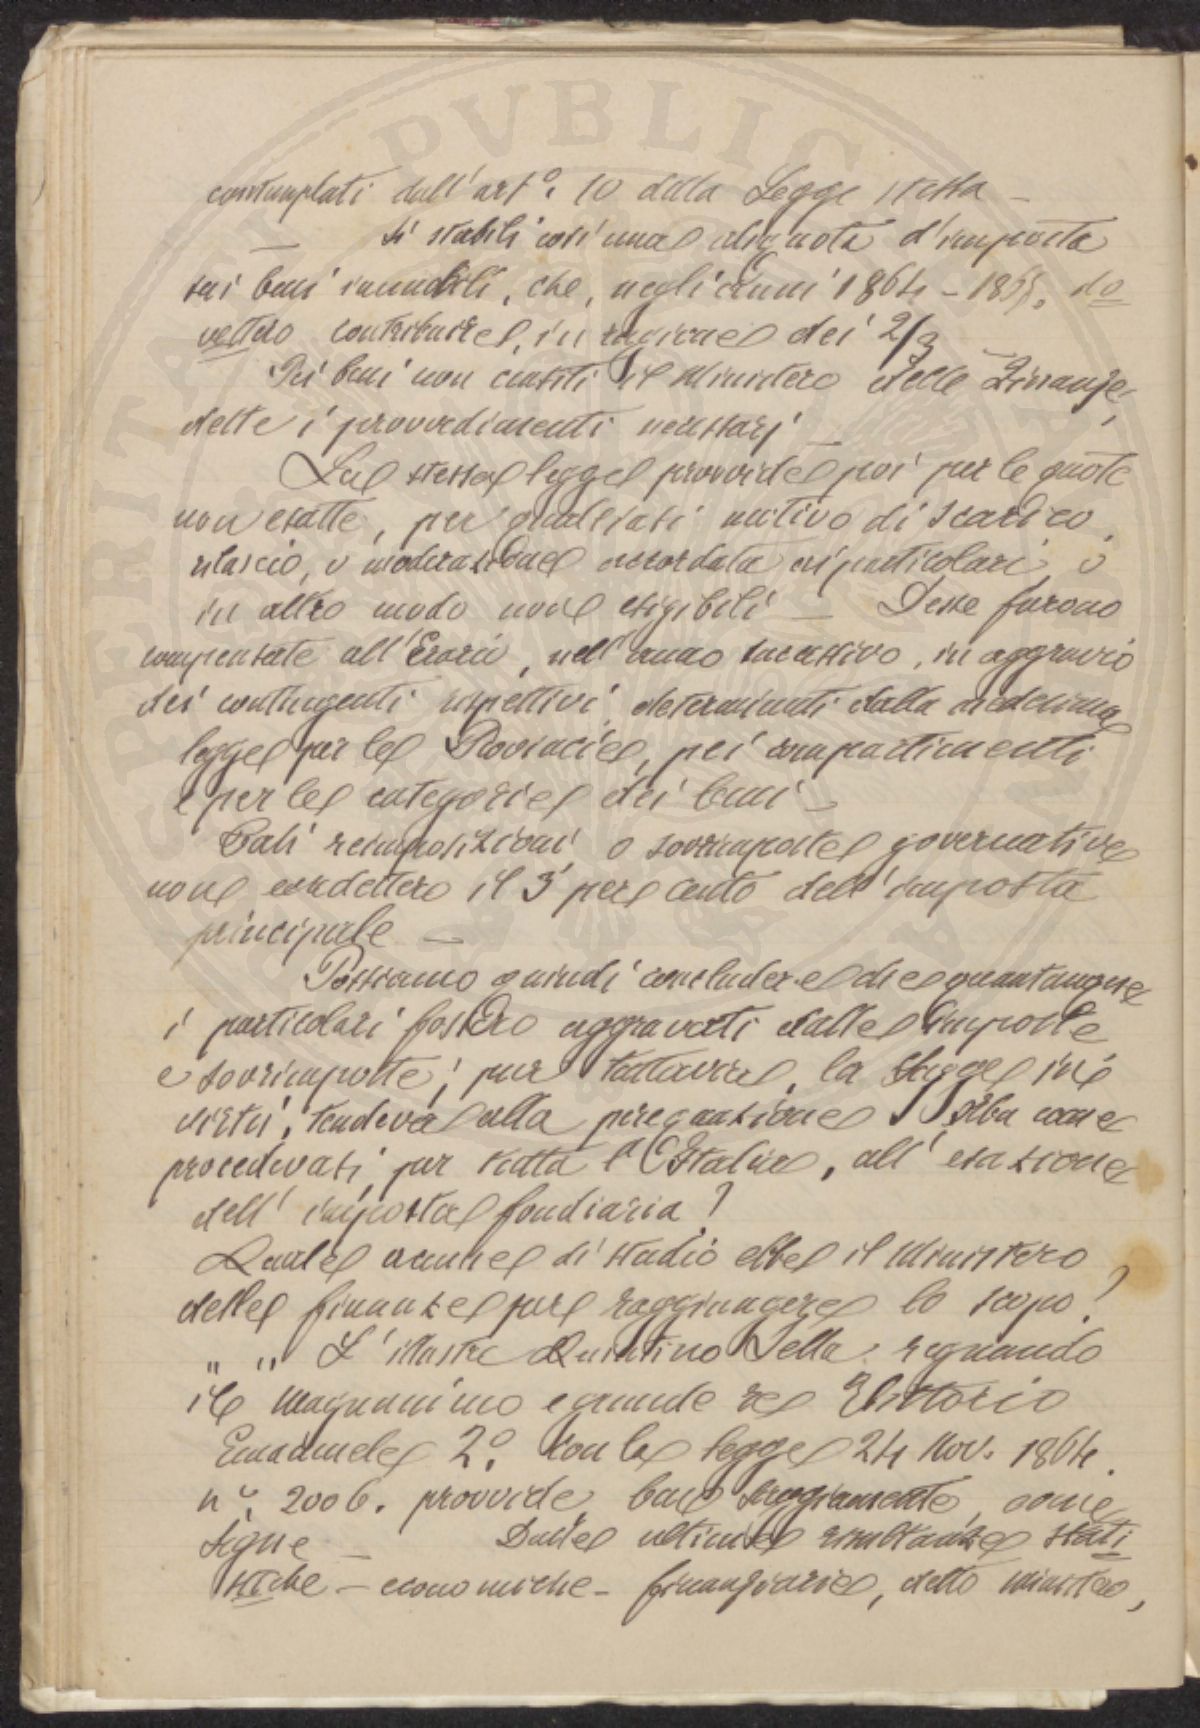 contemplati dall'art.° 10 della Legge stessa —
— Si stabilì così una aliquota d'imposta
sui beni immobili, che, negli anni 1864 – 1865, do
vettero contribuire, in ragione dei 2/3 —
Pei beni non censiti il Ministero delle Finanze,
dette i provvedimenti necessarj —
La stessa legge provvide poi per le quote
non esatte, per qualsiasi motivo di scarico,
rilascio, o moderazione accordata ai particolari o
in altro modo non esigibili — Desse furono
compensate all'Erario, nell'anno successivo, in aggravio
dei contingenti rispettivi, determinati dalla medesima
legge per le Provincie, pei compartimenti
e per le categorie dei beni —
Tali reimposizioni o sovrimposte governative
non eccedettero il 3 per cento dell'imposta
principale —
Possiamo quindi concludere che quantunque
i particolari fossero aggravati dalle imposte
e sovrimposte; pur tuttavia, la legge in
virtù, tendeva alla perequazione. Ma come
procedevasi, per tutta l'Italia, all'esazione
dell'imposta fondiaria?
Quale di studio ebbe il Ministero
delle finanze per raggiungere lo scopo?
" " L'illustre Quintino Sella, regnando
il Magnanimo e grande re Vittorio
Emanuele 2°. con la legge 24 Nov. 1864.
n°. 2006. provvide ben saggiamente, come
segue — Dalle ultime resultanze stati
stiche – economiche – finanziarie, detto ministero,